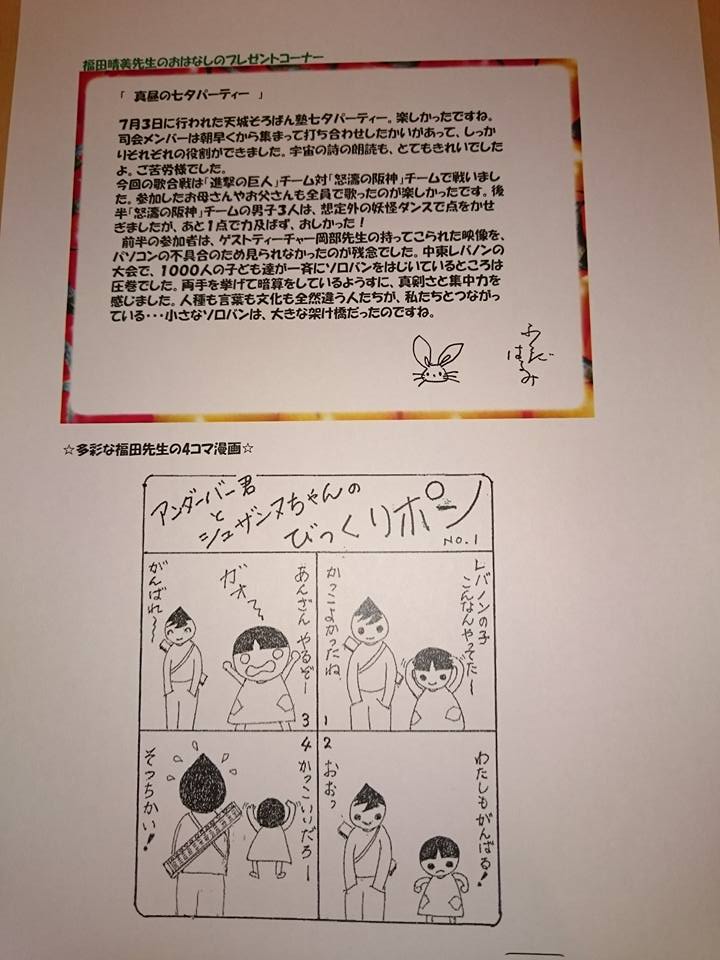 福田晴美先生のおはなしのプレゼントコーナー
「 真昼の七夕パーティー 」
7月3日に行われた天城そろばん塾七夕パーティー。楽しかったですね。
司会メンバーは朝早くから集まって打ち合わせしたかいがあって、しっか
りそれぞれの役割ができました。宇宙の詩の朗読も、とてもきれいでした
よ。ご苦労様でした。
今回の歌合戦は「進撃の巨人」チーム対「怒濤の阪神」チームで戦いまし
た。参加したお母さんやお父さんも全員で歌ったのが楽しかったです。後
半「怒濤の阪神」チームの男子3人は、想定外の妖怪ダンスで点をかせ
ぎましたが、あと1点で力及ばず、おしかった!
前半の参加者は、ゲストティーチャー岡部先生の持ってこられた映像を、
パソコンの不具合のため見られなかったのが残念でした。中東レバノンの
大会で、1000人の子ども達が一斉にソロバンをはじいているところは
圧巻でした。両手を挙げて暗算をしているようすに、真剣さと集中力を
感じました。人種も言葉も文化も全然違う人たちが、私たちとつながっ
ている・・・小さなソロバンは、大きな架け橋だったのですね。
ふくだ
はるみ
☆多彩な福田先生の4コマ漫画☆
アンダーバー君
と
シュザンヌちゃんの
びっくりポン
NO.1
レバノンの子
こんなんやってた〜
かっこよかったね
1
2
わたしもがんばる!
おおっ
あんざん やるぞー
ガオ〜
がんばれ〜
3
4
かっこいいだろー
そっちかい!